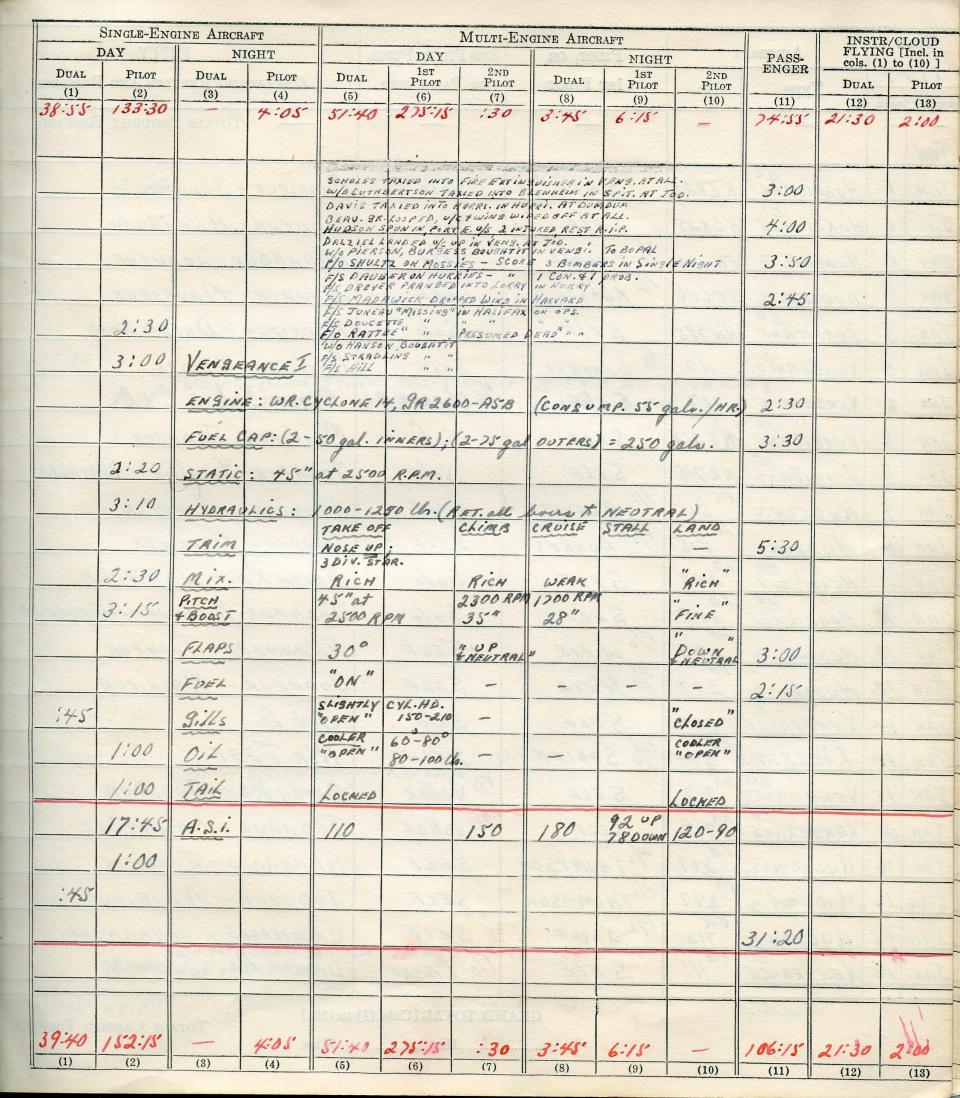 SINGLE-ENGINE AIRCRAFT MULTI-ENGINE AIRCRAFT PASS-ENGER INSTR/CLOUD FLYING [Incl. in cols. (1) to (10) ]
DAY NIGHT DAY NIGHT
DUAL PILOT DUAL PILOT DUAL 1ST PILOT 2ND PILOT DUAL 1ST PILOT 2ND PILOT DUAL PILOT
(1) (2) (3) (4) (5) (6) (7) (8) (9) (10) (11) (12) (13)
38:55 133:30 — 4:05 51:40 275:15 :30 3:45 6:15 — 74:55 21:30 2:00
SCHOLES TAXIED INTO FIRE EXTINGUISHER IN VENG. AT ALL.
W/O CUTHBERTSON TAXIED INTO BLENHEIM IN SPIT. AT JOD. 3:00
DAVIS TAXIED INTO HURRI. IN HURRI. AT DUMDUM
BEAU. GR. LOOPED, U/C & WING WIPED OFF AT ALL.
HUDSON SPUN IN, PORT E. U/S, 2 INJURED REST R.I.P. 4:00
DALZIEL LANDED U/C UP IN VENG. AT JOD. "
W/O PIERSON, BURGESS BOUGHT IT IN VENG. TO BOPAL
P/O SHULTZ ON MOSSIES - SCORE 3 BOMBERS IN SINGLE NIGHT 3:50
F/S DAUBER ON HURRIES - " 1 CON. & 1 PROB.
F/S DROVER PRANGED INTO LORRY IN HURRY
F/S MADAWICK DROPPED WING IN HARVARD 2:45
F/S JUNEAU "MISSING" IN HALIFAX ON OPS.
F/S DOUCETTE " " " "
2:30 F/O RATTEE " " PRESUMED DEAD " "
W/O HANSON, BOUGHT IT
F/S STRADLING " "
3:00 VENGEANCE I F/S HILL " "
ENGINE: WR. CYCLONE 14, GR2600-A5B (CONSUMP. 55 gals./HR.) 2:30
FUEL CAP: (2-50 gal. INNERS); (2-75 gal OUTERS) = 250 gals. 3:30
2:20 STATIC: 45" at 2500 R.P.M.
3:10 HYDRAULICS: 1000-1250 lbs. (RET. all levers to NEUTRAL)
TAKE OFF CLIMB CRUISE STALL LAND
TRIM NOSE UP; — 5:30
3 DIV. STAR.
2:30 MIX. RICH RICH WEAK "RICH"
3:15 PITCH & BOOST 45" at 2500 RPM 2300 RPM 35" 1700 RPM 28" "FINE"
FLAPS 30° "UP & NEUTRAL" "DOWN & NEUTRAL" 3:00
FUEL "ON" — — — — 2:15
:45 Gills SLIGHTLY "OPEN" CYL. HD. 150-210 — "CLOSED"
1:00 OIL COOLER "OPEN" 60°-80° 80-100 lb. — — COOLER "OPEN"
1:00 TAIL LOCKED LOCKED
17:45 A.S.I. 110 150 180 92 UP 78 DOWN 120-90
1:00
:45
31:20
39:40 152:15 — 4:05 51:40 275:15 :30 3:45 6:15 — 106:15 21:30 2:00
(1) (2) (3) (4) (5) (6) (7) (8) (9) (10) (11) (12) (13)